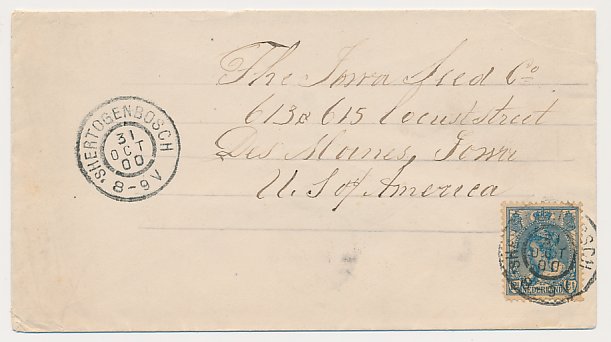 The Iowa Seed Co
613 & 615 Locust street
Des Moines, Iowa
U.S of America
'SHERTOGENBOSCH
31
OCT
00
8-9V
31
OCT
00